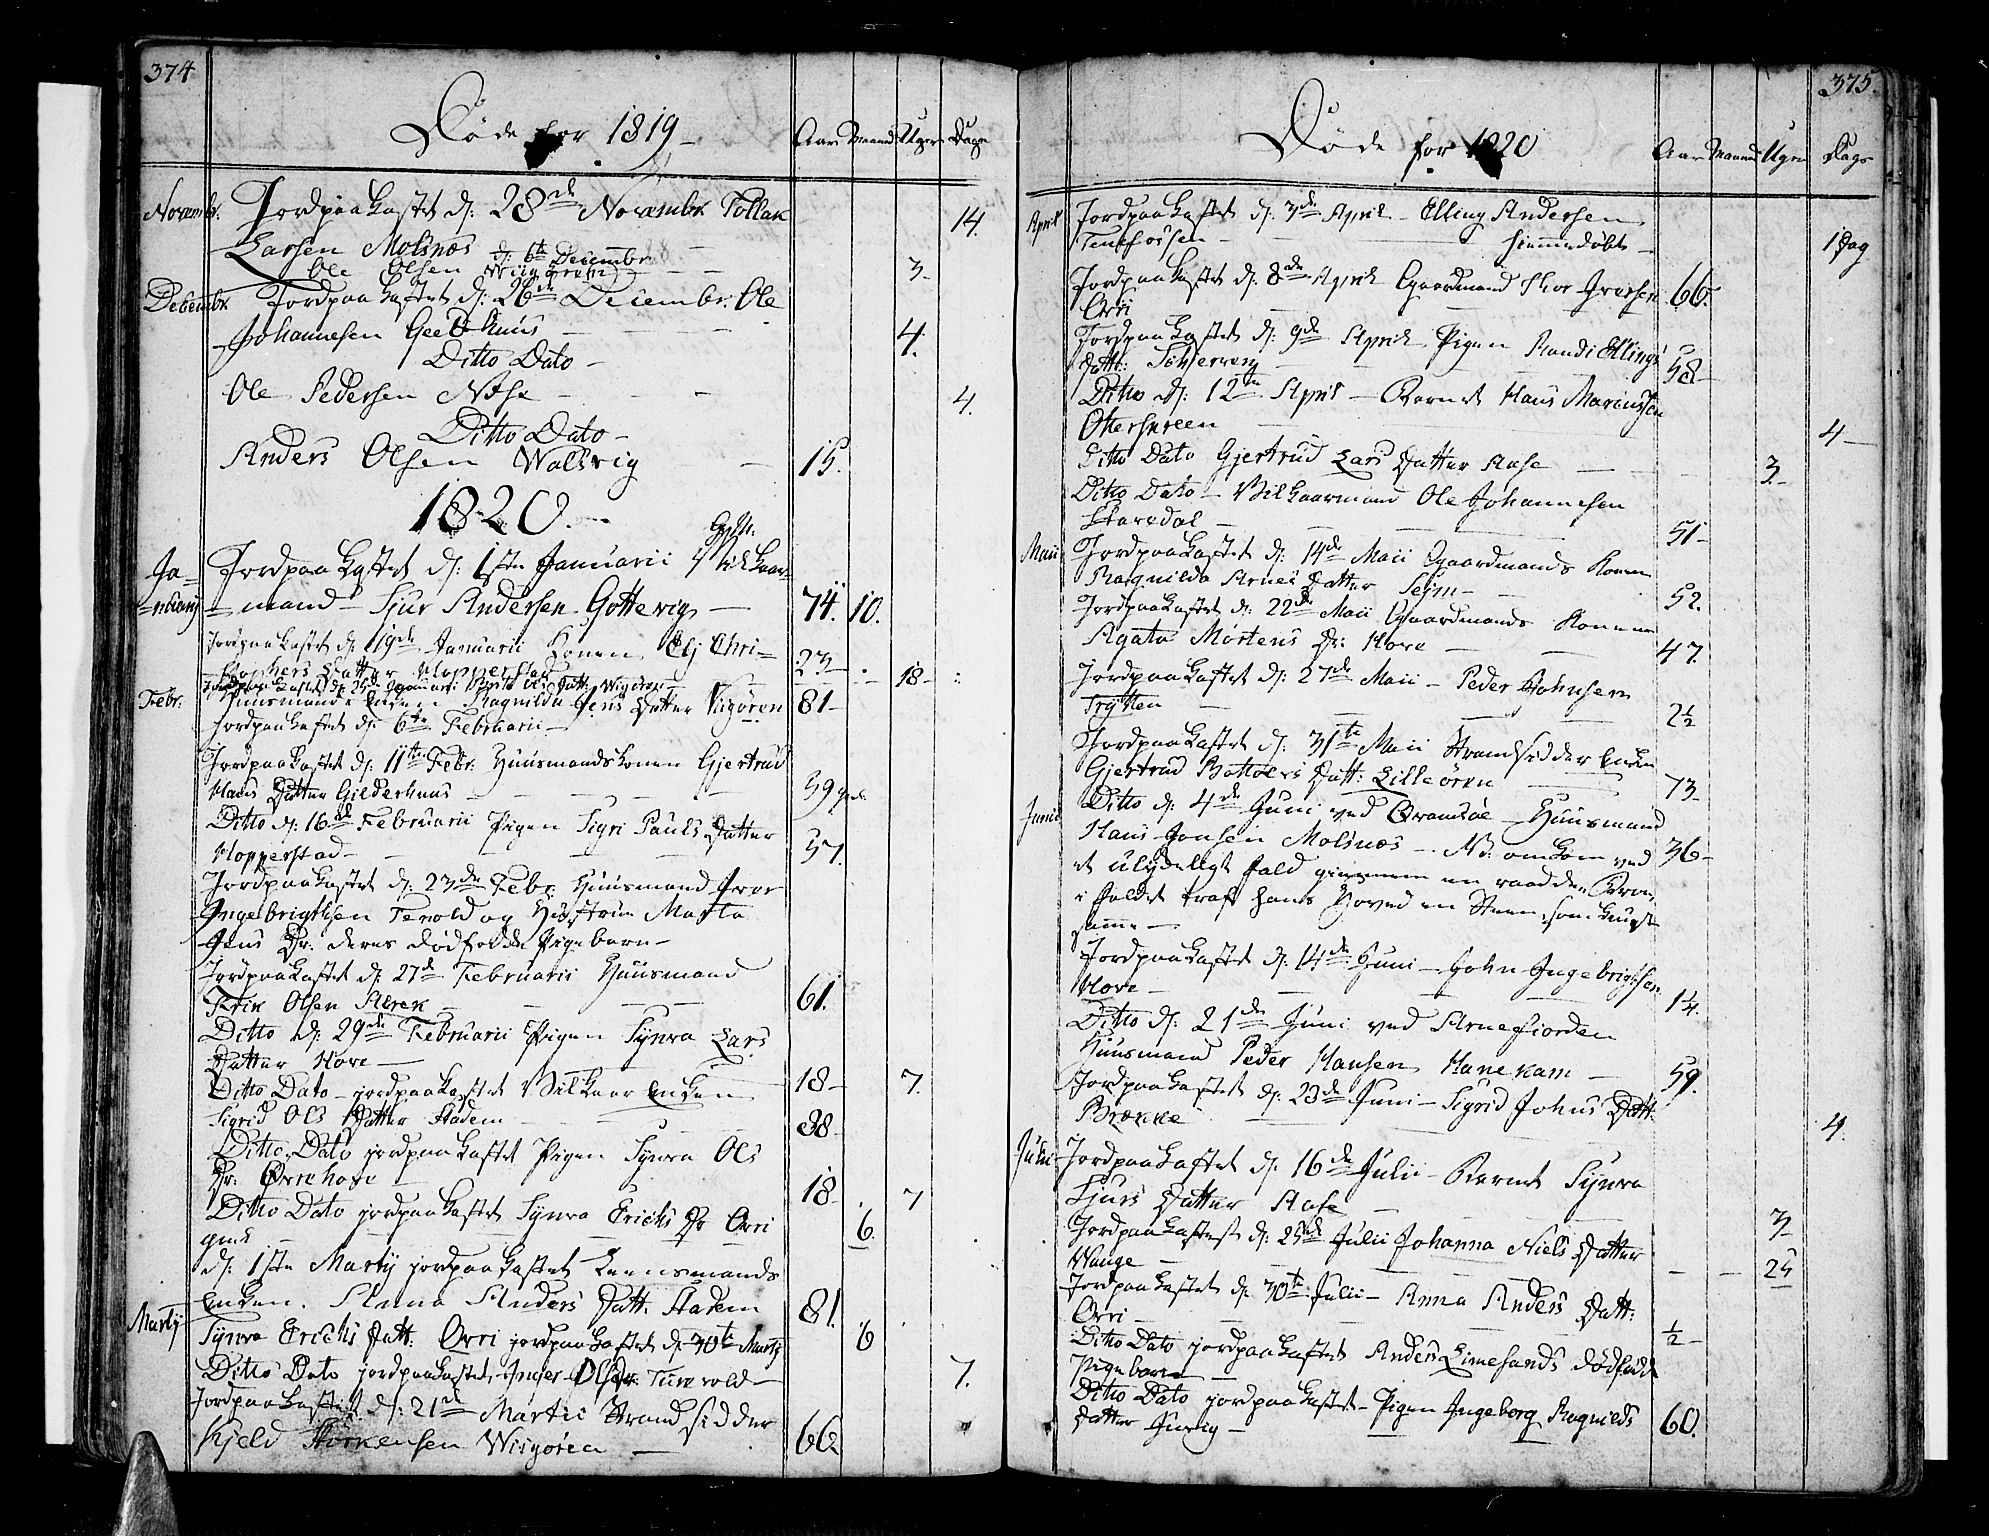 374
Døde for 1819
Aar Maaned Uger Dage
Novembr. Jordpaakastet d: 28de Novembr Tollak
Larsen Molsnæs 14.
d: 6te Decembr
Ole Olsen Wiigøren 3
Decembr Jordpaakastet d: 26de Decembr: Ole
Johannesen Geelhuus 4.
Ditto Dato
Ole Pedersen Næse 4.
Ditto Dato
Anders Olsen Walsvig 15.
1820
Januarij Jordpaakastet d: 1ste Januarii Vilkaar=
=mand Siur Andersen Gottevig 74. 10.
Jordpaakastet d: 19de Januarii Konen Chri=
stophers Datter Hopperstad 23 18
Jordpaakastet d: 25de Januari Ols Datt. Wigøren
Febr: Huusmands Enken Ragnilda Jens Datter Viigøren 81
Jordpaakastet d: 6te Februarii
Jordpaakastet d: 11te Febr: Huusmandskonen Gjertrud
Hans Datter Gilderhuus 59
Ditto d: 16de Februarii Pigen Sigri Pauls Datter
Hopperstad 57.
Jordpaakastet d: 23de Febr: Huusmand Iver
Ingebrigtsen Tenold og Hustrue Marta
Jens Dr. deres dødfødde Pigebarn
Jordpaakastet d: 27de Februarii Huusmand
Erik Olsen 61.
Ditto d: 29de Februarii Pigen Synva Lars
Datter Hove 18 7.
Ditto Dato jordpaakastet Vilkaar Enken
Sigrid Ols Datter Stadem 88
Ditto Dato jordpaakastet Pigen Synva Ols
Dr: Orrehove 18 7
Ditto Dato jordpaakastet Synva Erichs Dr Orri
6.
d: 1ste Martij jordpaakastet Leensmands
Enken. Anna Anders Datt: Stadem 81.
Martij Synva Erichs Datt: Orri jordpaakastet d: 30te Martij 6
Ditto Dato jordpaakastet Olsdr: Turvold 7.
Jordpaakastet d: 21de Martii Strandsidder
Kjeld Wiigøren 66
375.
Døde for 1820
Aar Maaned Uger Dage
April Jordpaakastet d: 3de April Elling Andersen
Tenefossen hiemmedøbt 1 Dag
Jordpaakastet d: 8de April Gaardmand Thor Iversen
Orri 66.
Jordpaakastet d: 9de April Pigen Randi Ellings
Datt: 58
Ditto d: 12te April Barnet Hans Mariussen
4
Ditto Dato Gjertrud Lars Datter Aase 3
Ditto Dato Vilkaarmand Ole Johannesen
Staredal 51
Maii Jordpaakastet d: 14de Maii Gaardmands Konen
Ragnilda Arnes Datter Sejm 52.
Jordpaakastet d: 22de Maii Gaardmands Konen
Agata Mortens Dr: Hove 47.
Jordpaakastet d: 27de Maii Peder Johnsen
Trytten 2½
Jordpaakastet d: 31te Maii Strandsidder Enken
Gjertrud Bottolvs Datt: Lilleøren 73
Junii Ditto d: 4de Juni ved Huusmand
Hans Jonsen Molsnæs. NB. omkom ved 36
et ulydeligt fald giennem en raadden Broe,
i faldet traf hans Hoved en Steen, som knust
samme
Jordpaakastet d: 14de Juni John Ingebrigtsen
Hove 1¼.
Ditto d: 21de Juni ved Arnefiorden
Huusmand Peder Hansen Hanekam 59.
Jordpaakastet d: 23de Juni Sigrid Johns Datt:
Brekke 4.
Julii Jordpaakastet d: 16de Julii Barnet Synva
Siurs Datter Aase 3
Jordpaakastet d: 25de Julii Johanna Niels Datter
Wange 25
Jordpaakastet d: 30te Julii Anna Anders Datt:
Orri ½
Ditto Dato jordpaakastet Anders Limesands dødfødde
Pigebarn
Ditto Dato jordpaakastet Pigen Ingeborg Ragnilds
Datter 60.